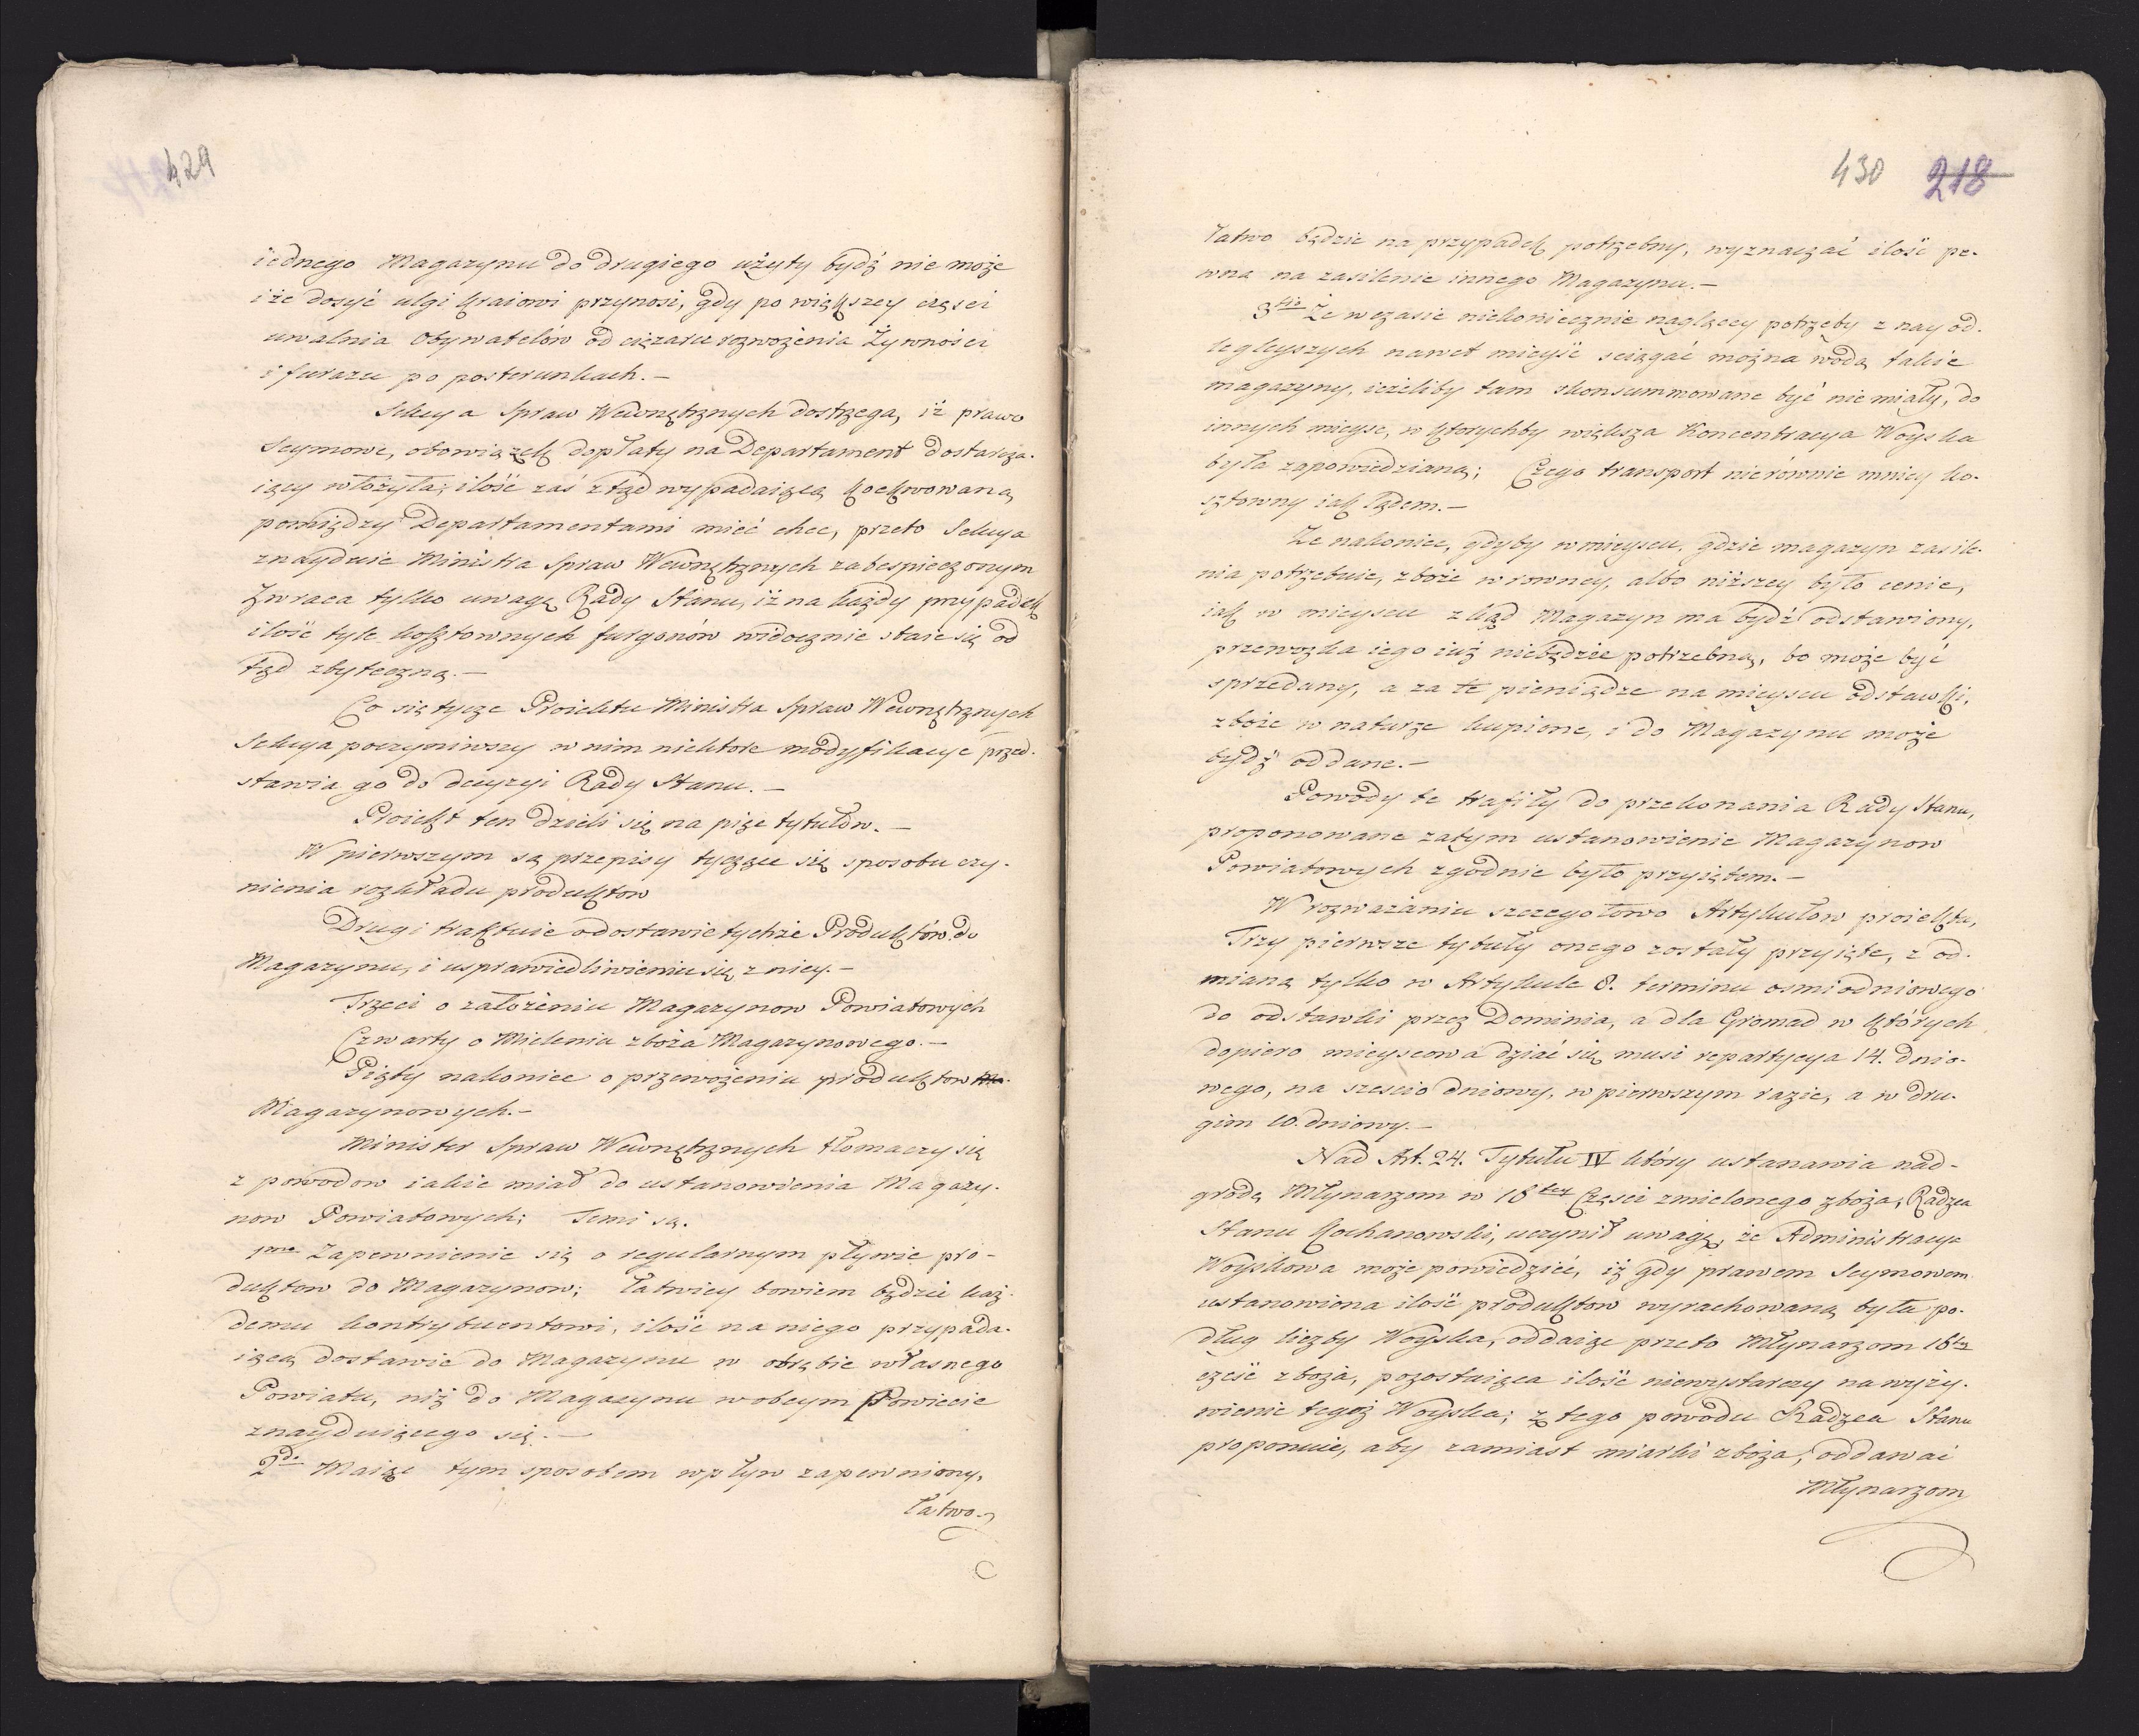 429
iednego Magazynu do drugiego użyty bydź nie może
i że dosyć ulgi kraiowi przynosi, gdy po większey części
uwalnia Obywatelów od ciężaru rozwożenia Żywności
i furażu po posterunkach.—
Sekcya Spraw Wewnętrznych dostrzega, iż prawo
Seymowe, obowiązek dopłaty na Departament dostarcza-
iący włożyła; ilość zaś ztąd wypadaiącą
pomiędzy Departamentami mieć chce, przeto Sekcya
znayduie Ministra Spraw Wewnętrznych zabespieczonym
Zwraca tylko uwagę Rady Stanu, iż na każdy przypadek
ilość tyle kosztownych furgonów widocznie staie się od
tąd zbyteczną.—
Co się tycze Proiektu Ministra Spraw Wewnętrznych
Sekcya poczyniwszy w nim niektore modyfikacye przed-
stawia go do decyzyi Rady Stanu.—
Proiekt ten dzieli się na pięc tytułów.—
W pierwszym są przepisy tyczące się sposobu czy-
nienia rozkładu produktow
Drugi traktuie o dostawie tychże Produktów do
Magazynu, i usprawiedliwieniu się z niey.—
Trzeci o założeniu Magazynow Powiatowych
Czwarty o Mieleniu zboża Magazynowego.—
Piąty nakoniec o przewożeniu produktow
Magazynowych.—
Minister Spraw Wewnętrznych tłomaczy się
z powodow iakie miał do ustanowienia Magazy-
now Powiatowych; Temi są.
1mo Zapewnienie się o regularnym pływie pro-
duktow do Magazynow; łatwiey bowiem będzie każ-
demu kontrybuentowi, ilość na niego przypada-
iącą dostawić do Magazynu w obrębie własnego
Powiatu, niż do Magazynu w obcym Powiecie
znayduiącego się.—
2do Maiąc tym sposobem wpływ zapewniony,
łatwo
430 218
łatwo będzie na przypadek potrzebny, wyznaczać ilość pe-
wną na zasilenie innego Magazynu.—
3tio Że w czasie niekoniecznie naglącey potrzeby z nayod-
legleyszych nawet mieysc ściągać można wodą takie
magazyny, ieżeliby tam skonsummowane być nie miały, do
innych mieysc, w ktorychby większa Koncentracya Woyska
była zapowiedzianą; Czego transport nierównie mniey ko-
sztowny iak lądem.—
Że nakoniec, gdyby w mieyscu, gdzie magazyn zasile-
nia potrzebuie, zboże w rowney, albo niższey było cenie,
iak w mieyscu zkąd Magazyn ma bydź odstawiony,
przewozka iego iuż niebędzie potrzebną, bo może być
sprzedany, a za te pieniądze na mieyscu odstawki,
zboże w naturze kupione, i do Magazynu może
bydź oddane.—
Powody te trafiły do przekonania Rady Stanu,
proponowane zatym ustanowienie Magazynow
Powiatowych zgodnie było przyiętem.—
W rozważaniu szczegołowo Artykułow proiektu,
Trzy pierwsze tytuły onego zostały przyięte, z od-
mianą tylko w Artykule 8. terminu osmiodniowego
do odstawki przez Dominia, a dla Gromad w których
dopiero mieyscowa dziać się musi repartycya 14. dnio-
wego, na sześcio dniowy, w pierwszym razie, a w dru-
gim 10. dniowy.—
Nad Art. 24. Tytułu IV który ustanawia nad-
grodę Młynarzom w 18tey Części zmielonego zboża; Radzca
Stanu Kochanowski, uczynił uwagę, że Administracya
Woyskowa może powiedzieć, iż gdy prawem Seymowem
ustanowiona ilość produktow wyrachowaną była po-
dług liczby Woyska, oddaiąc przeto Młynarzom 18tą
część zboża, pozostaiąca ilość niewystarczy na wyży-
wienie tegoż Woyska; z tego powodu Radzca Stanu
proponuie, aby zamiast miarki zboża, oddawać
Młynarzom